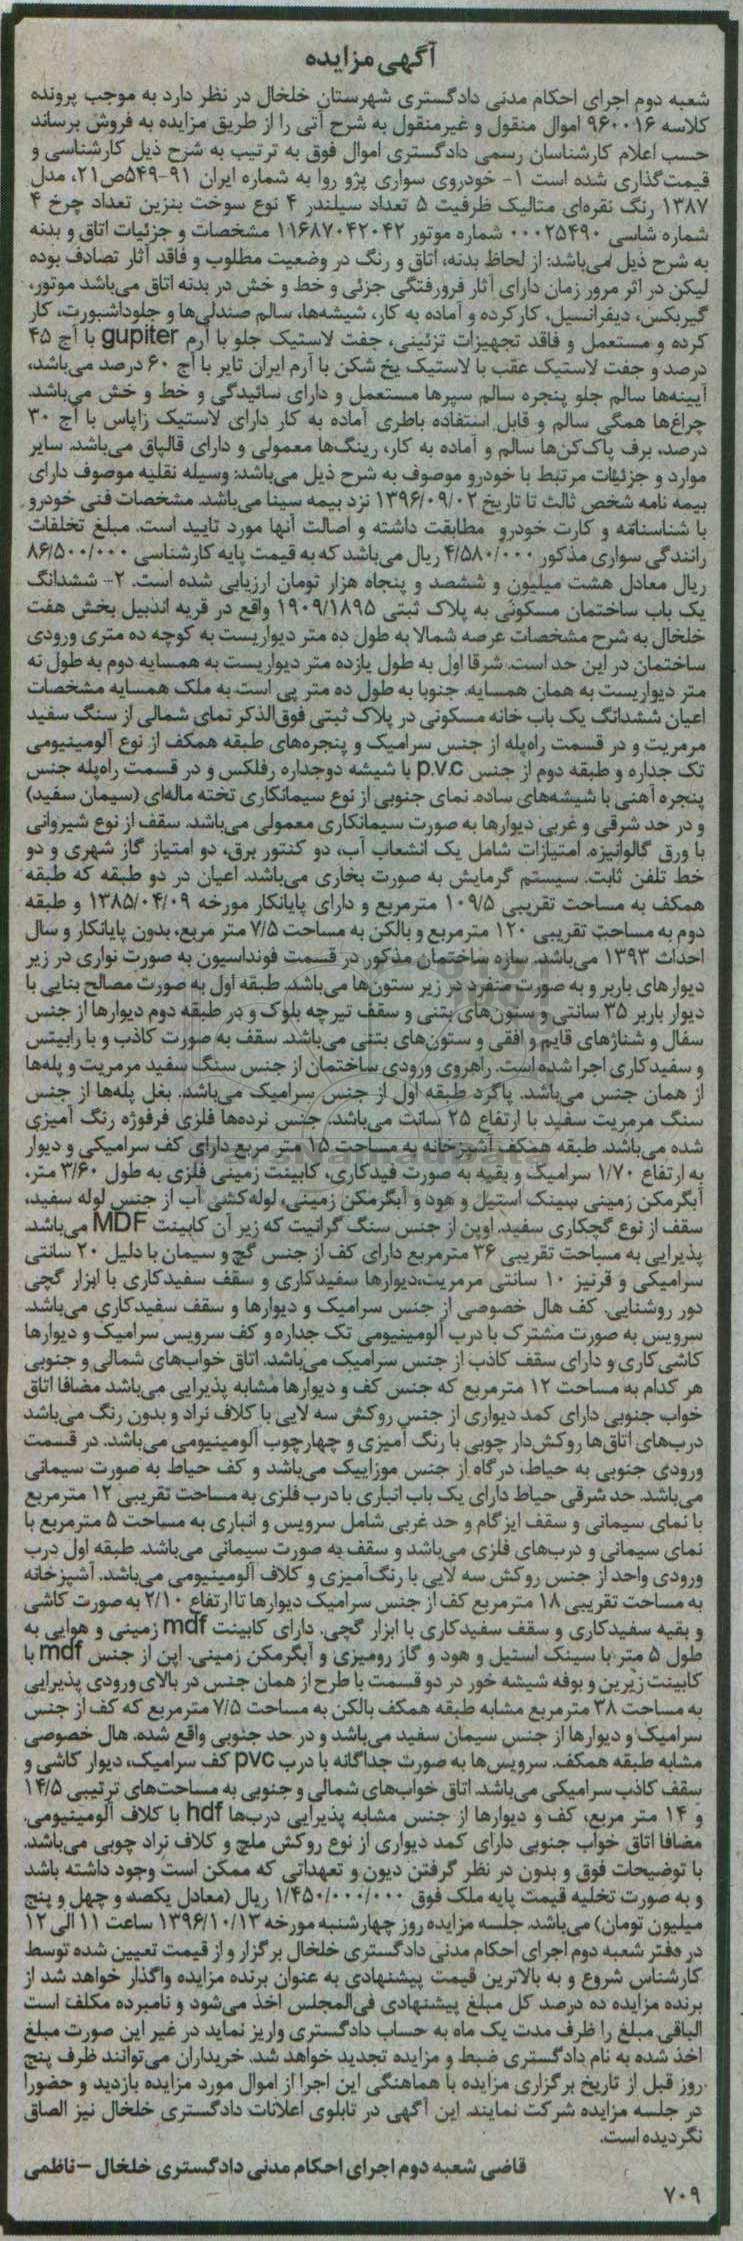 آگهی مزایده
شعبه دوم اجرای احکام مدنی دادگستری شهرستان خلخال در نظر دارد به موجب پرونده
کلاسه ۹۶۰۰۱۶ اموال منقول و غیرمنقول به شرح آتی را از طریق مزایده به فروش برساند
حسب اعلام کارشناسان رسمی دادگستری اموال فوق به ترتیب به شرح ذیل کارشناسی و
قیمت‌گذاری شده است ۱- خودروی سواری پژو روا به شماره ایران ۹۱-۵۴۹ص۲۱، مدل
۱۳۸۷ رنگ نقره‌ای متالیک ظرفیت ۵ تعداد سیلندر ۴ نوع سوخت بنزین تعداد چرخ ۴
شماره شاسی ۰۰۰۲۵۴۹۰ شماره موتور ۱۱۶۸۷۰۴۲۰۴۲ مشخصات و جزئیات اتاق و بدنه
به شرح ذیل می‌باشد: از لحاظ بدنه، اتاق و رنگ در وضعیت مطلوب و فاقد آثار تصادف بوده
لیکن در اثر مرور زمان دارای آثار فرورفتگی جزئی و خط و خش در بدنه اتاق می‌باشد موتور،
گیربکس، دیفرانسیل، کارکرده و آماده به کار، شیشه‌ها، سالم صندلی‌ها و جلوداشبورت، کار
کرده و مستعمل و فاقد تجهیزات تزئینی، جفت لاستیک جلو با آرم gupiter با آج ۴۵
درصد و جفت لاستیک عقب با لاستیک یخ شکن با آرم ایران تایر با آج ۶۰ درصد می‌باشد،
آیینه‌ها سالم جلو پنجره سالم سپرها مستعمل و دارای سائیدگی و خط و خش می‌باشد.
چراغ‌ها همگی سالم و قابل استفاده باطری آماده به کار دارای لاستیک زاپاس با آج ۳۰
درصد، برف پاک‌کن‌ها سالم و آماده به کار، رینگ‌ها معمولی و دارای قالپاق می‌باشد. سایر
موارد و جزئیات مرتبط با خودرو موصوف به شرح ذیل می‌باشد: وسیله نقلیه موصوف دارای
بیمه نامه شخص ثالث تا تاریخ ۱۳۹۶/۰۹/۰۲ نزد بیمه سینا می‌باشد. مشخصات فنی خودرو
با شناسنامه و کارت خودرو مطابقت داشته و اصالت آنها مورد تایید است. مبلغ تخلفات
رانندگی سواری مذکور ۴/۵۸۰/۰۰۰ ریال می‌باشد که به قیمت پایه کارشناسی ۸۶/۵۰۰/۰۰۰
ریال معادل هشت میلیون و ششصد و پنجاه هزار تومان ارزیابی شده است. ۲- ششدانگ
یک باب ساختمان مسکونی به پلاک ثبتی ۱۹۰۹/۱۸۹۵ واقع در قریه اندبیل بخش هفت
خلخال به شرح مشخصات عرصه شمالا به طول ده متر دیواریست به کوچه ده متری ورودی
ساختمان در این حد است. شرقا اول به طول یازده متر دیواریست به همسایه دوم به طول نه
متر دیواریست به همان همسایه. جنوبا به طول ده متر پی است به ملک همسایه مشخصات
اعیان ششدانگ یک باب خانه مسکونی در پلاک ثبتی فوق‌الذکر نمای شمالی از سنگ سفید
مرمریت و در قسمت راه‌پله از جنس سرامیک و پنجره‌های طبقه همکف از نوع آلومینیومی
تک جداره و طبقه دوم از جنس p.v.c با شیشه دوجداره رفلکس و در قسمت راه‌پله جنس
پنجره آهنی با شیشه‌های ساده. نمای جنوبی از نوع سیمانکاری تخته ماله‌ای (سیمان سفید)
و در حد شرقی و غربی دیوارها به صورت سیمانکاری معمولی می‌باشد. سقف از نوع شیروانی
با ورق گالوانیزه. امتیازات شامل یک انشعاب آب، دو کنتور برق، دو امتیاز گاز شهری و دو
خط تلفن ثابت. سیستم گرمایش به صورت بخاری می‌باشد. اعیان در دو طبقه که طبقه
همکف به مساحت تقریبی ۱۰۹/۵ مترمربع و دارای پایانکار مورخه ۱۳۸۵/۰۴/۰۹ و طبقه
دوم به مساحت تقریبی ۱۲۰ مترمربع و بالکن به مساحت ۷/۵ متر مربع، بدون پایانکار و سال
احداث ۱۳۹۳ می‌باشد. سازه ساختمان مذکور در قسمت فونداسیون به صورت نواری در زیر
دیوارهای باربر و به صورت منفرد در زیر ستون‌ها می‌باشد. طبقه اول به صورت مصالح بنایی با
دیوار باربر ۳۵ سانتی و ستون‌های بتنی و سقف تیرچه بلوک و در طبقه دوم دیوارها از جنس
سفال و شناژهای قایم و افقی و ستون‌های بتنی می‌باشد. سقف به صورت کاذب و با رابیتس
و سفیدکاری اجرا شده است. راهروی ورودی ساختمان از جنس سنگ سفید مرمریت و پله‌ها
از همان جنس می‌باشد. پاگرد طبقه اول از جنس سرامیک می‌باشد. بغل پله‌ها از جنس
سنگ مرمریت سفید با ارتفاع ۲۵ سانت می‌باشد. جنس نرده‌ها فلزی فرفوژه رنگ آمیزی
شده می‌باشد. طبقه همکف آشپزخانه به مساحت ۱۵ متر مربع دارای کف سرامیکی و دیوار
به ارتفاع ۱/۷۰ سرامیک و بقیه به صورت فیدکاری، کابینت زمینی فلزی به طول ۳/۶۰ متر،
آبگرمکن زمینی سینک استیل و هود و آبگرمکن زمینی، لوله‌کشی آب از جنس لوله سفید،
سقف از نوع گچکاری سفید. اوپن از جنس سنگ گرانیت که زیر آن کابینت MDF می‌باشد.
پذیرایی به مساحت تقریبی ۳۶ مترمربع دارای کف از جنس گچ و سیمان با دلیل ۲۰ سانتی
سرامیکی و قرنیز ۱۰ سانتی مرمریت، دیوارها سفیدکاری و سقف سفیدکاری با ابزار گچی
دور روشنایی. کف هال خصوصی از جنس سرامیک و دیوارها و سقف سفیدکاری می‌باشد.
سرویس به صورت مشترک با درب آلومینیومی تک جداره و کف سرویس سرامیک و دیوارها
کاشی کاری و دارای سقف کاذب از جنس سرامیک می‌باشد. اتاق خواب‌های شمالی و جنوبی
هر کدام به مساحت ۱۲ مترمربع که جنس کف و دیوارها مشابه پذیرایی می‌باشد مضافا اتاق
خواب جنوبی دارای کمد دیواری از جنس روکش سه لایی با کلاف نراد و بدون رنگ می‌باشد
درب‌های اتاق‌ها روکش‌دار چوبی با رنگ آمیزی و چهارچوب آلومینیومی می‌باشد. در قسمت
ورودی جنوبی به حیاط، درگاه از جنس موزاییک می‌باشد و کف حیاط به صورت سیمانی
می‌باشد. حد شرقی حیاط دارای یک باب انباری با درب فلزی به مساحت تقریبی ۱۲ مترمربع
با نمای سیمانی و سقف ایزگام و حد غربی شامل سرویس و انباری به مساحت ۵ مترمربع با
نمای سیمانی و درب‌های فلزی می‌باشد و سقف به صورت سیمانی می‌باشد. طبقه اول درب
ورودی واحد از جنس روکش سه لایی با رنگ‌آمیزی و کلاف آلومینیومی می‌باشد. آشپزخانه
به مساحت تقریبی ۱۸ مترمربع کف از جنس سرامیک دیوارها تا ارتفاع ۲/۱۰ به صورت کاشی
و بقیه سفیدکاری و سقف سفیدکاری با ابزار گچی. دارای کابینت mdf زمینی و هوایی به
طول ۵ متر با سینک استیل و هود و گاز رومیزی و آبگرمکن زمینی. اپن از جنس mdf با
کابینت زیرین و بوفه شیشه خور در دو قسمت با طرح از همان جنس در بالای ورودی پذیرایی
به مساحت ۳۸ مترمربع مشابه طبقه همکف بالکن به مساحت ۷/۵ مترمربع که کف از جنس
سرامیک و دیوارها از جنس سیمان سفید می‌باشد و در حد جنوبی واقع شده. هال خصوصی
مشابه طبقه همکف. سرویس‌ها به صورت جداگانه با درب pvc کف سرامیک، دیوار کاشی و
سقف کاذب سرامیکی می‌باشد. اتاق خواب‌های شمالی و جنوبی به مساحت‌های ترتیبی ۱۴/۵
و ۱۴ متر مربع، کف و دیوارها از جنس مشابه پذیرایی درب‌ها hdf با کلاف آلومینیومی.
مضافا اتاق خواب جنوبی دارای کمد دیواری از نوع روکش ملچ و کلاف نراد چوبی می‌باشد.
با توضیحات فوق و بدون در نظر گرفتن دیون و تعهداتی که ممکن است وجود داشته باشد
و به صورت تخلیه قیمت پایه ملک فوق ۱/۴۵۰/۰۰۰/۰۰۰ ریال (معادل یکصد و چهل و پنج
میلیون تومان) می‌باشد. جلسه مزایده روز چهارشنبه مورخه ۱۳۹۶/۱۰/۱۳ ساعت ۱۱ الی ۱۲
در دفتر شعبه دوم اجرای احکام مدنی دادگستری خلخال برگزار و از قیمت تعیین شده توسط
کارشناس شروع و به بالاترین قیمت پیشنهادی به عنوان برنده مزایده واگذار خواهد شد از
برنده مزایده ده درصد کل مبلغ پیشنهادی فی‌المجلس اخذ می‌شود و نامبرده مکلف است
الباقی مبلغ را ظرف مدت یک ماه به حساب دادگستری واریز نماید در غیر این صورت مبلغ
اخذ شده به نام دادگستری ضبط و مزایده تجدید خواهد شد. خریداران می‌توانند ظرف پنج
روز قبل از تاریخ برگزاری مزایده با هماهنگی این اجرا از اموال مورد مزایده بازدید و حضورا
در جلسه مزایده شرکت نمایند. این آگهی در تابلوی اعلانات دادگستری خلخال نیز الصاق
نگردیده است.
قاضی شعبه دوم اجرای احکام مدنی دادگستری خلخال - ناظمی
۷۰۹